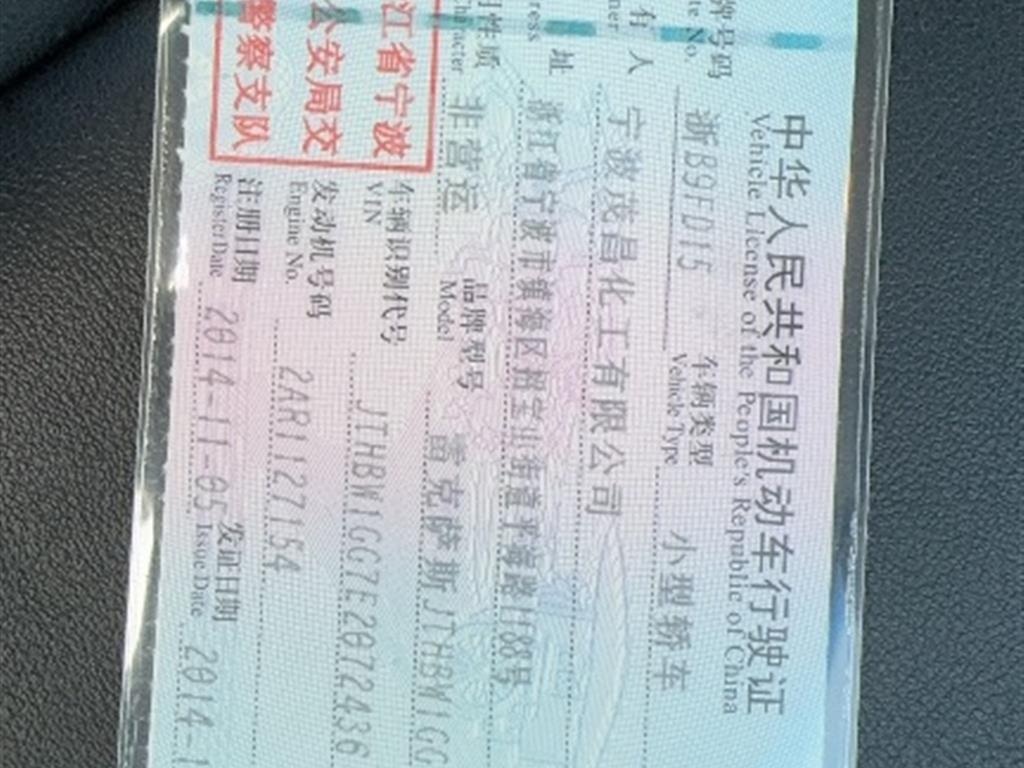 中华人民共和国机动车行驶证
Vehicle License of the People's Republic of China
牌号码 浙B9FD15 车辆类型 小型轿车
No. Vehicle Type
有人 宁波茂昌化工有限公司
址 浙江省宁波市镇海区招宝山街道平海路1188号
性质 非营运 品牌型号 雷克萨斯JTHBW1GG
Model
江省宁波 车辆识别代号 JTHBW1GG7E2072436
VIN
公安局交 发动机号码 2AR1127154
Engine No.
警察支队 注册日期 2014-11-05 发证日期 2014-1
Register Date Issue Date